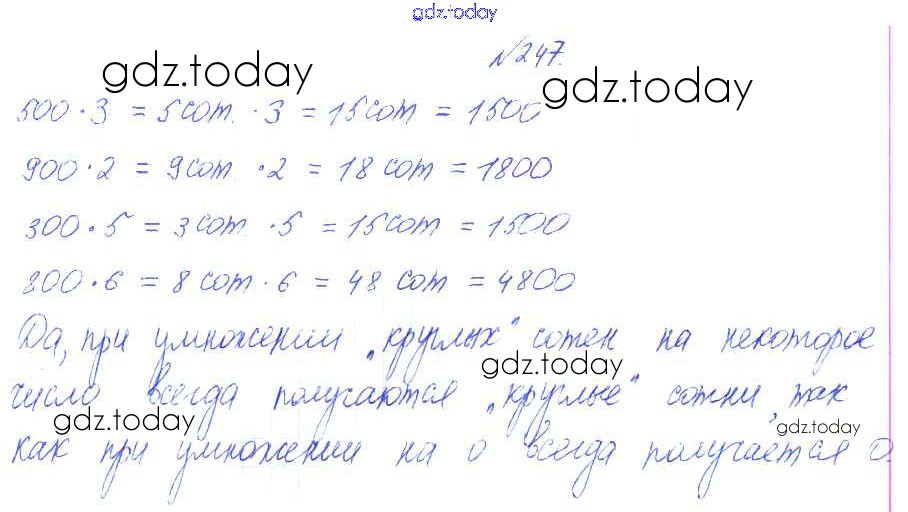 gdz.today
№247.
gdz.today
500 · 3 = 5 сот. · 3 = 15 сот = 1500
gdz.today
900 · 2 = 9 сот. · 2 = 18 сот = 1800
300 · 5 = 3 сот. · 5 = 15 сот = 1500
800 · 6 = 8 сот · 6 = 48 сот = 4800
Да, при умножении „круглых" сотен на некоторое
gdz.today
число всегда получаются „круглые" сотни, так
gdz.today
gdz.today
как при умножении на 0 всегда получается 0.